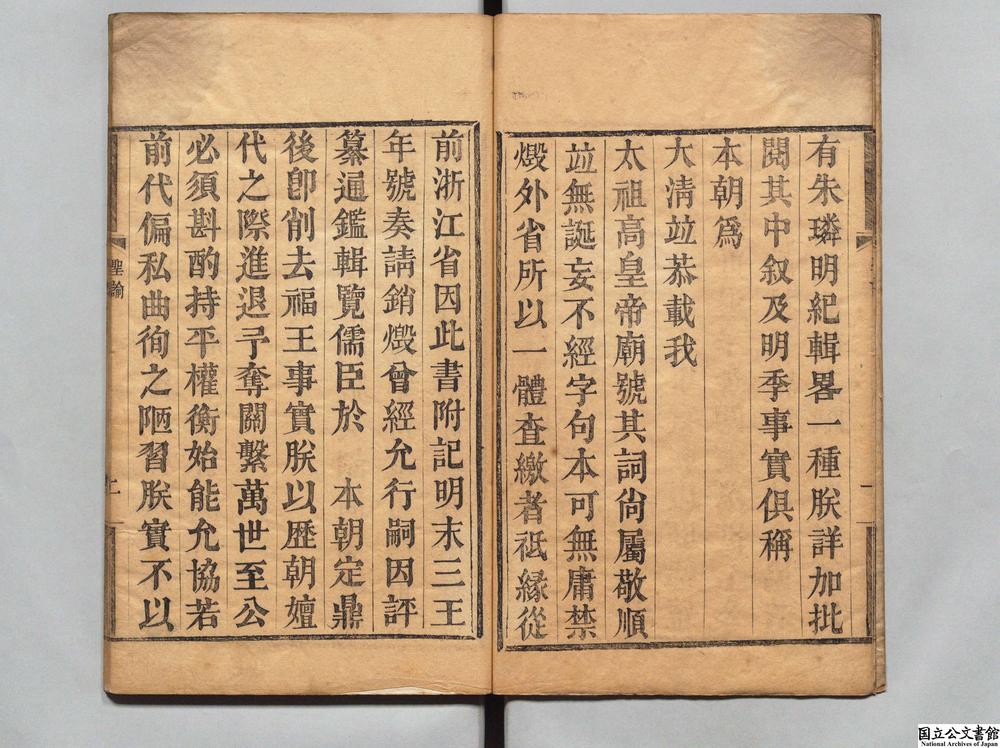 有朱璘明紀輯畧一種朕詳加批
閱其中叙及明季事實俱稱
本朝爲
大淸竝恭載我
太祖高皇帝廟號其詞尙屬敬順
竝無誕妄不經字句本可無庸禁
燬外省所以一體查繳者祇緣從
前浙江省因此書附記明末三王
年號奏請銷燬曾經允行嗣因評
纂通鑑輯覽儒臣於　本朝定鼎
後卽削去福王事實朕以歷朝嬗
代之際進退予奪關繫萬世至公
必須斟酌持平權衡始能允協若
前代偏私曲徇之陋習朕實不以
聖諭
二
一
国立公文書館
National Archives of Japan